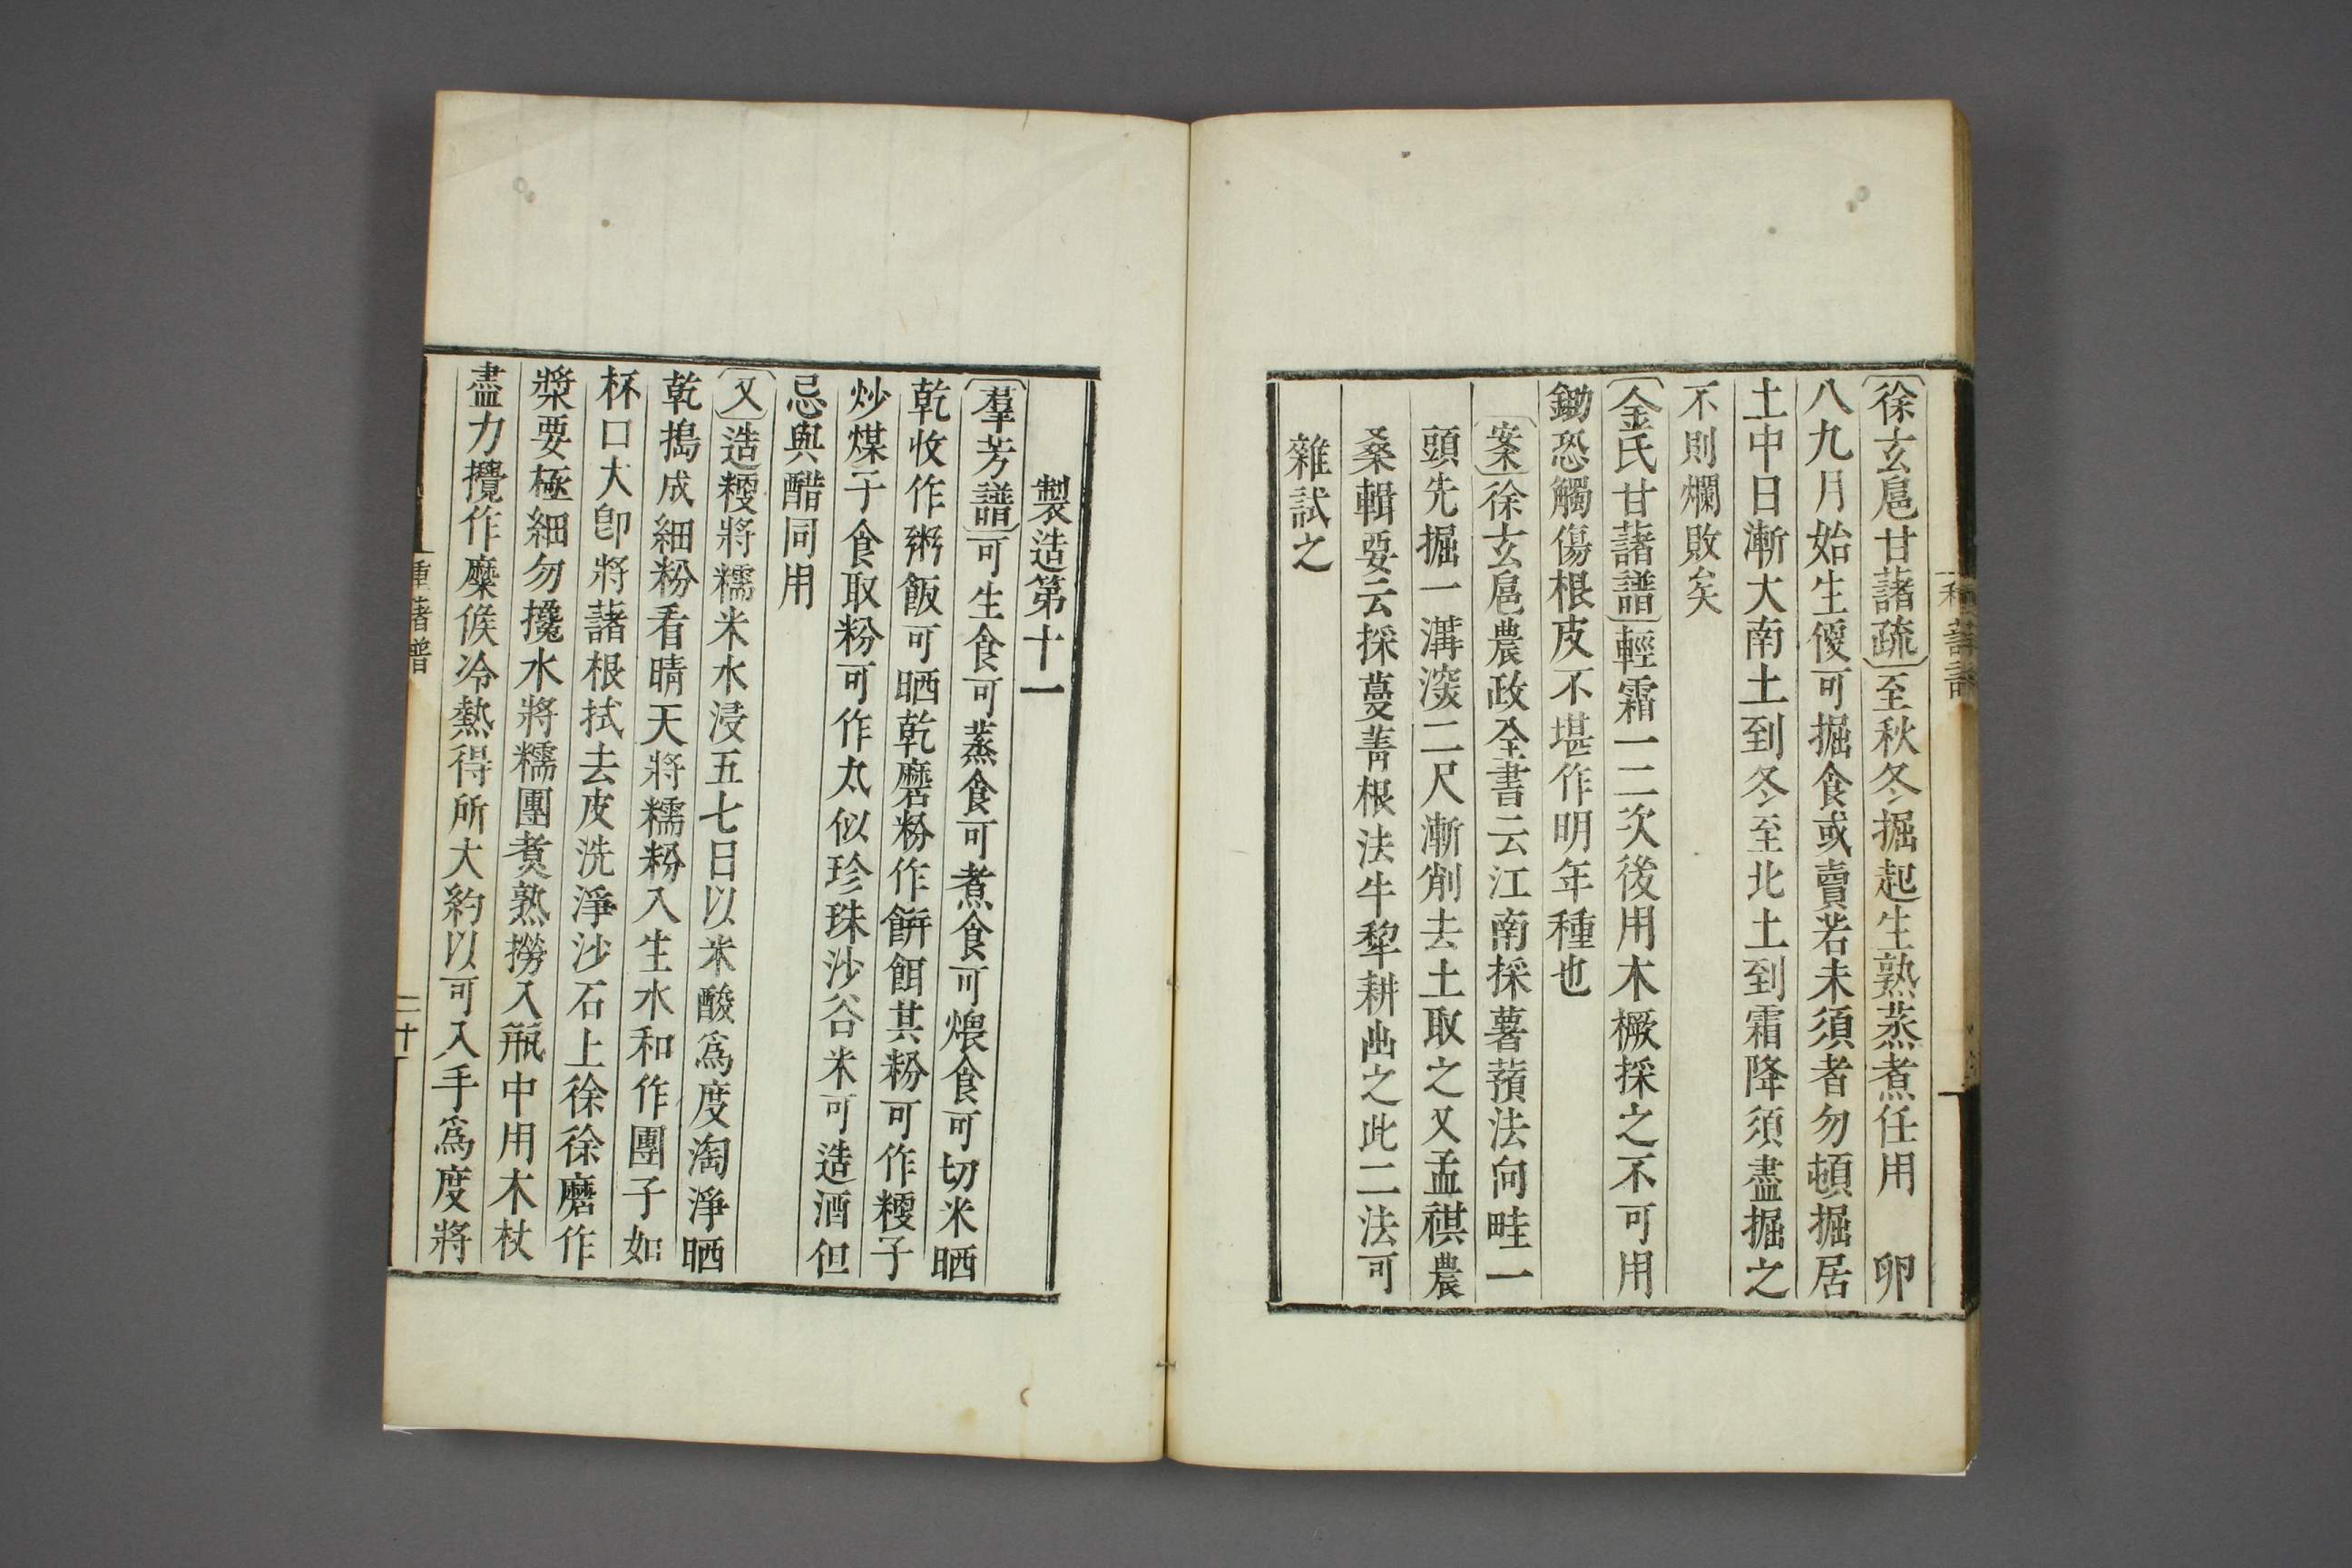 徐玄扈甘藷疏至秋冬掘起生熟蒸煮任用　卵
八九月始生便可掘食或賣若未須者勿頓掘居
土中日漸大南土到冬至北土到霜降須盡掘之
不則爛敗矣
金氏甘藷譜輕霜一二次後用木橛採之不可用
鋤恐觸傷根皮不堪作明年種也
案徐玄扈農政全書云江南採薯蕷法向畦一
頭先掘一溝深二尺漸削去土取之又孟祺農
桑輯要云採蔓菁根法牛犂耕出之此二法可
雜試之
製造第十一
羣芳譜可生食可蒸食可煮食可煨食可切米晒
乾收作粥飯可晒乾磨粉作餅餌其粉可作粳子
炒煤子食取粉可作丸似珍珠沙谷米可造酒但
忌與醋同用
又造粳將糯米水浸五七日以米酸爲度淘淨晒
乾搗成細粉看晴天將糯粉入生水和作團子如
杯口大卽將藷根拭去皮洗淨沙石上徐徐磨作
漿要極細勿攙水將糯團煑熟撈入瓶中用木杖
盡力攪作糜候冷熱得所大約以可入手爲度將
種藷譜
二十